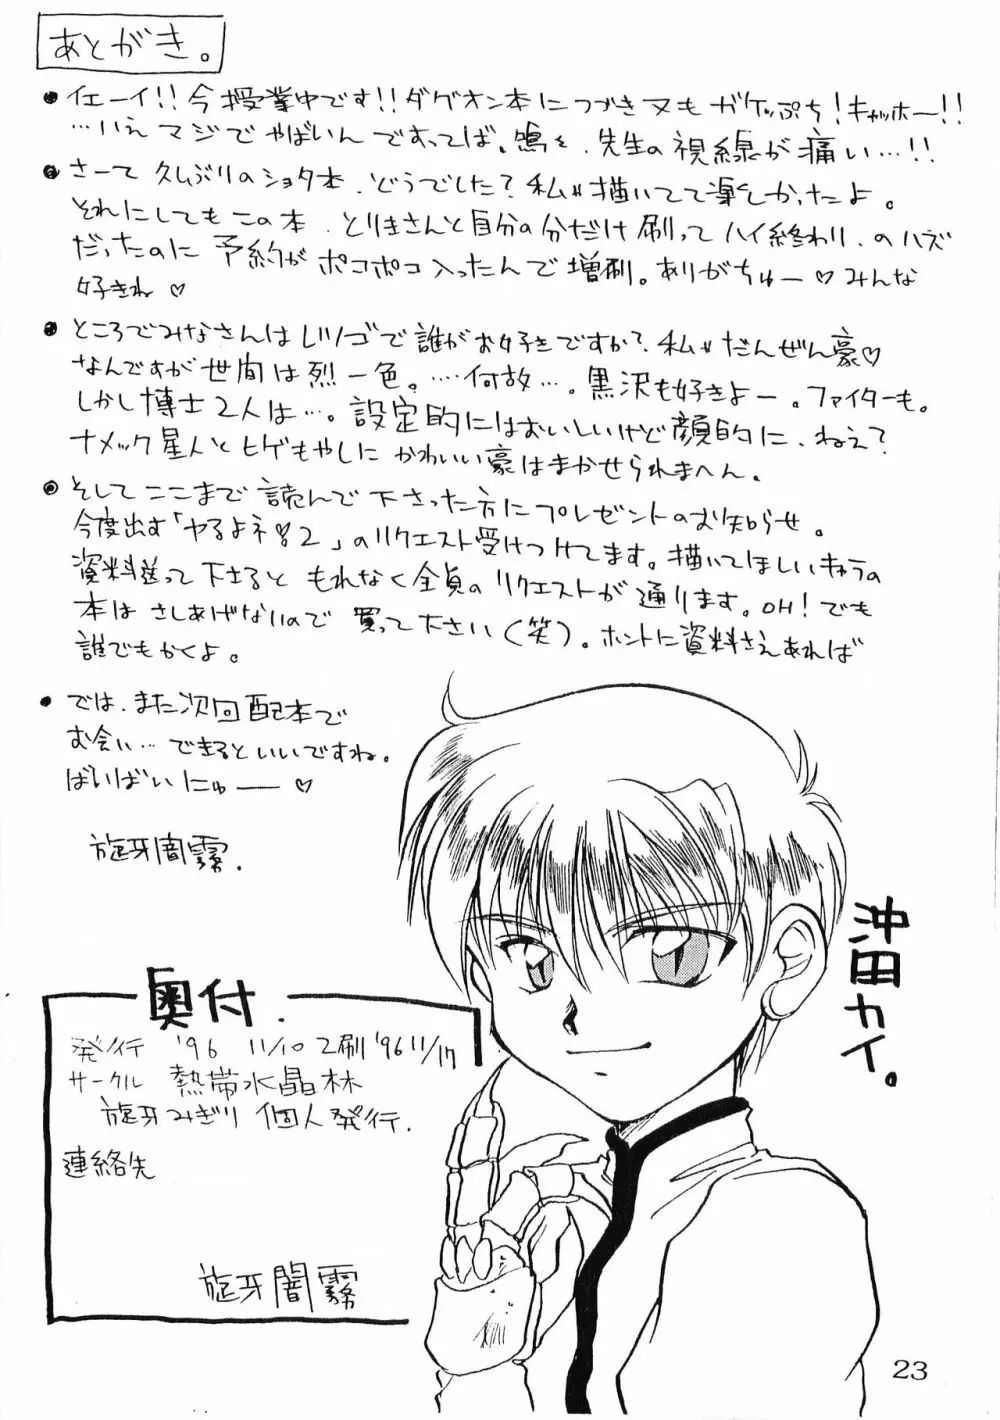 あとがき。
・イエーイ!!今授業中です!!ダグオン本につづき又もガケっぷち!キャッホー!!
…いえマジでやばいんですってば。鳴々、先生の視線が痛い…!!
・さーて久しぶりのショタ本、どうでした?私は描いてて楽しかったよ。
それにしてもこの本、とりまさんと自分の分だけ刷ってハイ終わり、のハズ
だったのに予約がポコポコ入ったんで増刷。ありがちゅー♡みんな
好きね♡
・ところでみなさんはレツゴで誰がお好きですか?私はだんぜん豪♡
なんですが世間は烈一色。…何故…。黒沢も好きよー。ファイターも。
しかし博士2人は…。設定的にはおいしいけど顔的に、ねえ?
ナメック星人とヒゲもやしにかわいい豪はまかせられまへん。
・そしてここまで読んで下さった方にプレゼントのお知らせ。
今度出す「ヤるよネ 2」のリクエスト受けつけてます。描いてほしいキャラの
資料送って下さるともれなく全員のリクエストが通ります。OH!でも
本はさしあげないので買って下さい(笑)。ホントに資料さえあれば
誰でもかくよ。
・では、また次回配本で
お会い…できるといいですね。
ばいばいにゅー♡
旋牙闇霧.
沖田カイ。
奥付.
発行 '96 11/10 2刷'96 11/17
サークル 熱帯水晶林
旋牙みぎり 個人発行.
連絡先
旋牙闇霧
23